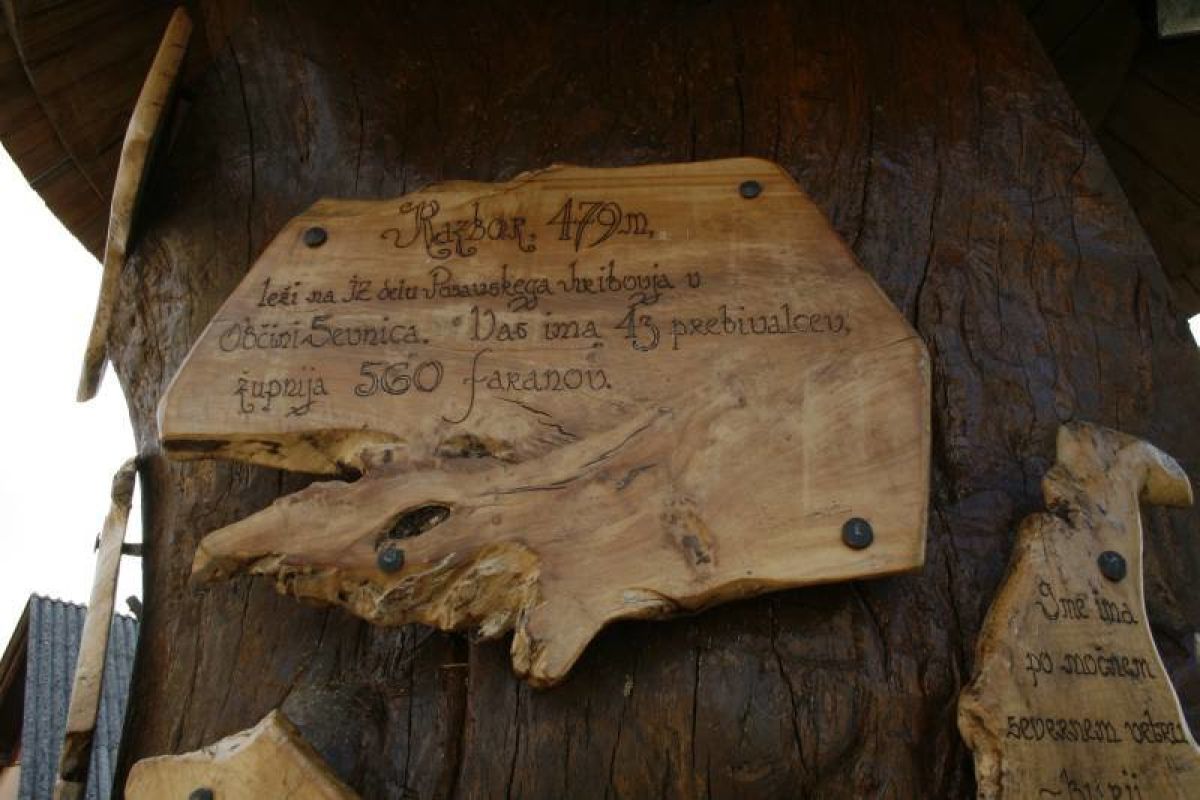 Razbor, 479 m,
leži na JZ delu Posavskega hribovja v
Občini Sevnica. Vas ima 43 prebivalcev,
župnija 560 faranov.
Ime ima
po močnem
severnem vetru
~ burji